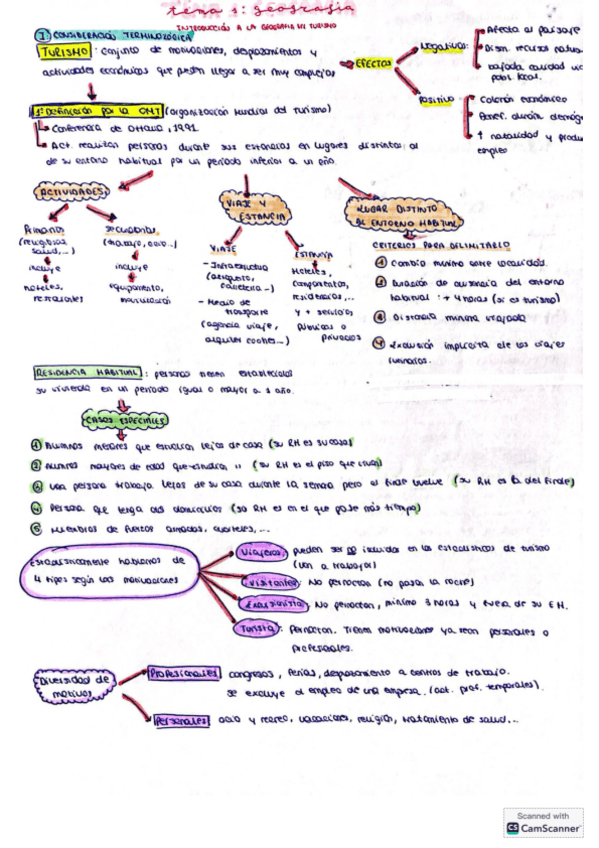 tema 1: geografía
INTRODUCCIÓN A LA GEOGRAFIA DEL TURISMO
1 CONSIDERACIÓN TERMINOLÓGICA
TURISMO: conjunto de motivaciones, desplazamientos y
actividades económicas que pueden llegar a ser muy complejas
EFECTOS
Negativos:
Afecta al paisaje
Dism. recursos natura
bajada calidad vid
pobl. local.
positivo:
Colchón económico
Benef. demóg
↑ natalidad y produc
empleo
1ª Definición por la OMT (organización Mundial del turismo)
Conferencia de Ottawa, 1991
Act. realizan personas durante sus estancias en lugares distintos al
de su entorno habitual por un período inferior a un año.
ACTIVIDADES
Primarios
(religiosas
salud,...)
incluye
hoteles,
restaurantes
secundarios
(trabajo, ocio...)
incluye
equipamiento,
VIAJE Y
ESTANCIA
VIAJE
- Infraestructura
(aeropuerto,
carretera...)
- Medio de
transporte
(agencia viaje,
alquiler coches...)
ESTANCIA
Hoteles,
campamentos,
residencias,...
y + servicios
públicos o
privados
LUGAR DISTINTO
AL ENTORNO HABITUAL
CRITERIOS PARA DELIMITARLO
1 Cambio mínimo entre localidades.
2 Duración de ausencia del entorno
habitual: + 4 horas (si es turismo)
3 Distancia mínima viajada
4 Exclusión implícita de los viajes
rutinarios.
RESIDENCIA HABITUAL: personas tienen establecida
su vivienda en un período igual o mayor a 1 año.
CASOS ESPECIALES
1 Alumnos menores que estudian lejos de casa (su RH es su casa)
2 Alumnos mayores de edad que estudian " (su RH es el piso que usan)
3 Una persona trabaja lejos de su casa durante la semana pero al finde vuelve (su RH es la del finde)
4 Persona que tenga dos domicilios (su RH es en el que pase más tiempo)
5 Miembros de fuerzas armadas, cuarteles,...
Estadísticamente hablamos de
4 tipos según las motivaciones
Viajeros: pueden ser no incluidos en las estadísticas de turismo
(van a trabajar)
Visitantes: No pernoctan (no pasan la noche)
Excursionista: No pernoctan, mínimo 3 horas y fuera de su E.H.
Turista: Pernoctan. Tienen motivaciones ya sean personales o
profesionales.
Diversidad de
motivos
Profesionales: congresos, ferias, desplazamiento a centros de trabajo.
se excluye el empleo de una empresa. (act. prof. temporales).
Personales: ocio y recreo, vacaciones, religión, tratamiento de salud...
Scanned with
CS CamScanner